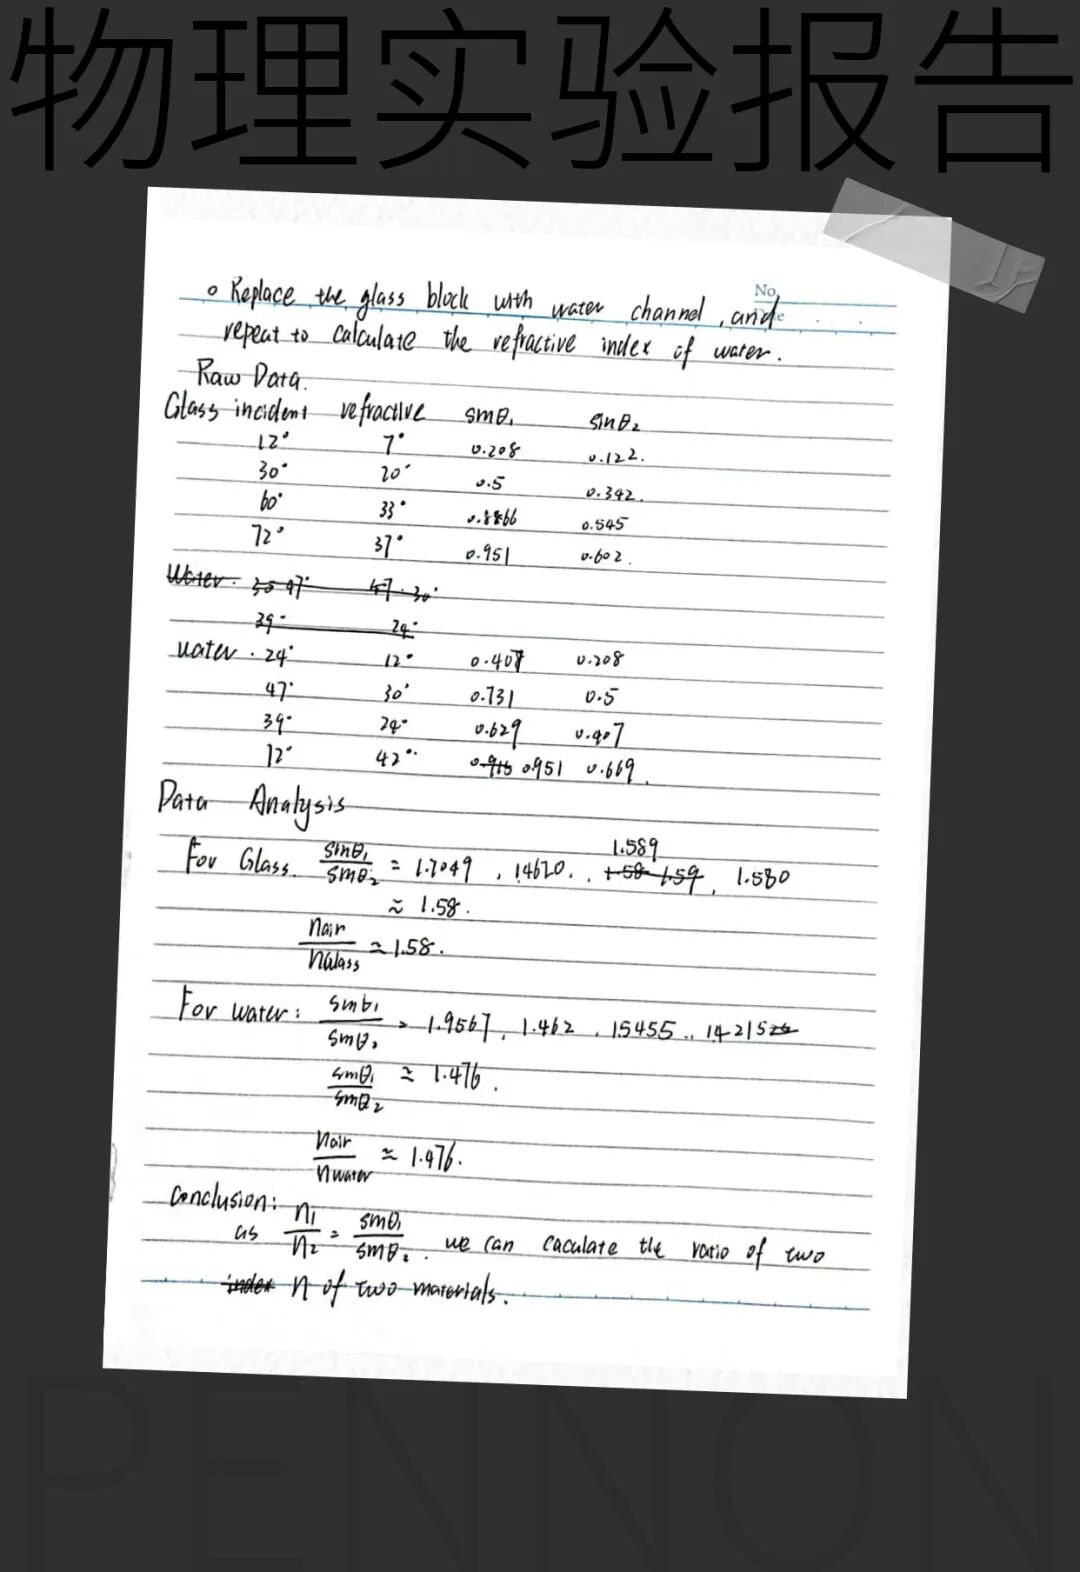 物理实验报告
No
Replace the glass block with water channel, and
repeat to calculate the refractive index of water.
Raw Data.
Glass incident refractive sinθ₁ sinθ₂
12° 7° 0.208 0.122.
30° 20° 0.5 0.342.
60° 33° 0.8866 0.545
72° 37° 0.951 0.602.
Water.
39° 24°
water. 24° 12° 0.407 0.208
47° 30° 0.731 0.5
39° 24° 0.629 0.407
12° 42° 0.951 0.669.
Data Analysis
1.589
For Glass. sinθ₁/sinθ₂ = 1.7049, 1.4620., 1.58 1.59, 1.580
≈ 1.58.
nair/nGlass ≈ 1.58.
For water: sinθ₁/sinθ₂ = 1.9567, 1.462, 1.5455., 1.4215
sinθ₁/sinθ₂ ≈ 1.476.
nair/nwater ≈ 1.476.
Conclusion:
as n₁/n₂ = sinθ₁/sinθ₂. we can caculate the ratio of two
index n of two materials.
PENNON